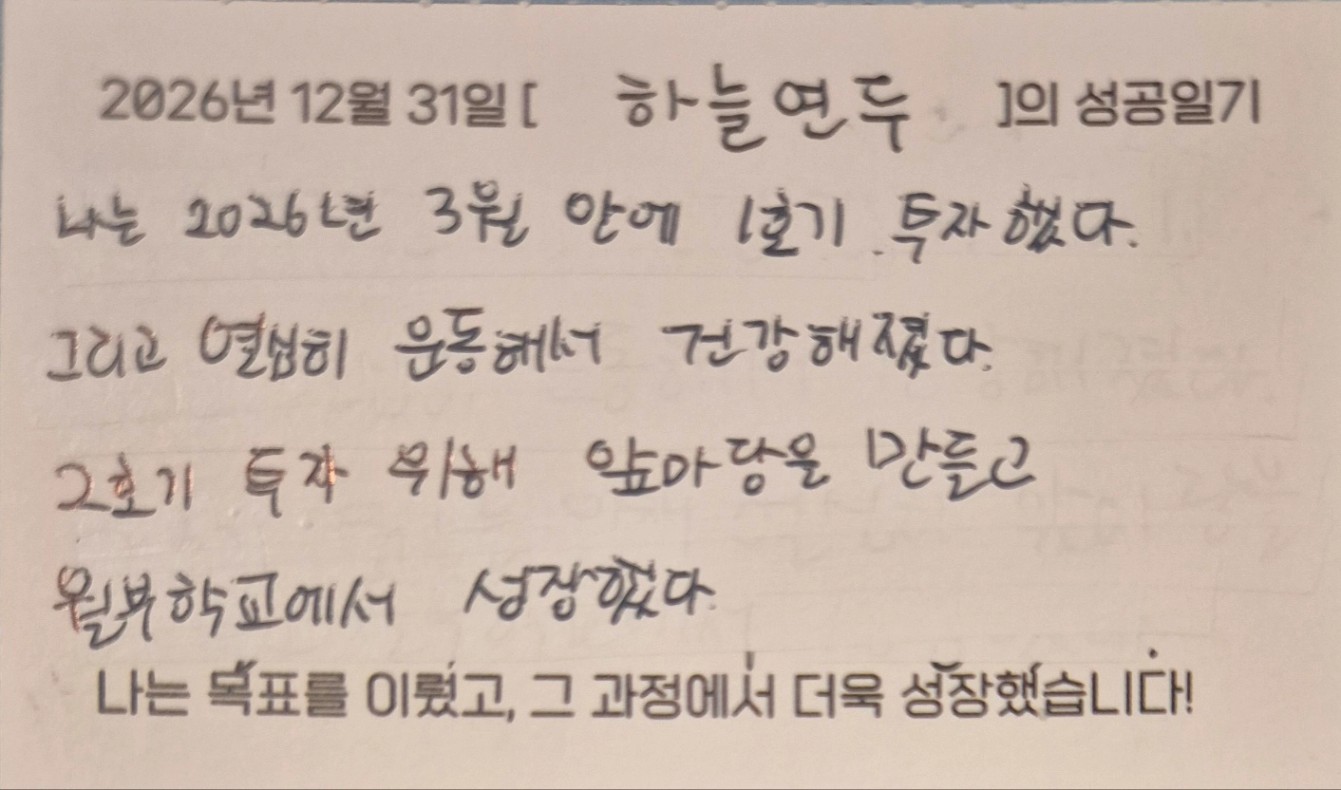 2026년 12월 31일 [ 하늘연두 ]의 성공일기
나는 2026년 3월 안에 1호기 투자했다.
그리고 열심히 운동해서 건강해졌다.
2호기 투자 위해 앞마당을 만들고
월부학교에서 성장했다.
나는 목표를 이뤘고, 그 과정에서 더욱 성장했습니다!